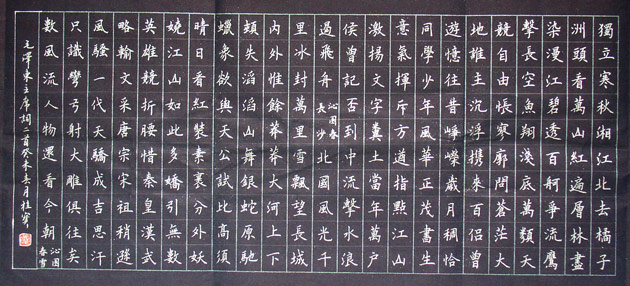 獨立寒秋湘江北去橘子
洲頭看萬山紅遍層林盡
染漫江碧透百舸爭流鷹
擊長空魚翔淺底萬類天
競自由悵寥廓問蒼茫大
地誰主沉浮携來百侶曾
遊憶往昔崢嶸歲月稠恰
同學少年風華正茂書生
意氣揮斥方遒指點江山
激揚文字糞土當年萬戶
侯曾記否到中流擊水浪
過飛舟沁園春長沙北國風光千
里冰封萬里雪飄望長城
內外惟餘莽莽大河上下
頓失滔滔山舞銀蛇原馳
蠟象欲與天公試比高須
晴日看紅裝素裹分外妖
嬈江山如此多嬌引無數
英雄競折腰惜秦皇漢武
略輸文采唐宗宋祖稍遜
風騷一代天驕成吉思汗
只識彎弓射大雕俱往矣
數風流人物還看今朝沁園春雪
毛澤東主席詞二首癸未春月桂寧